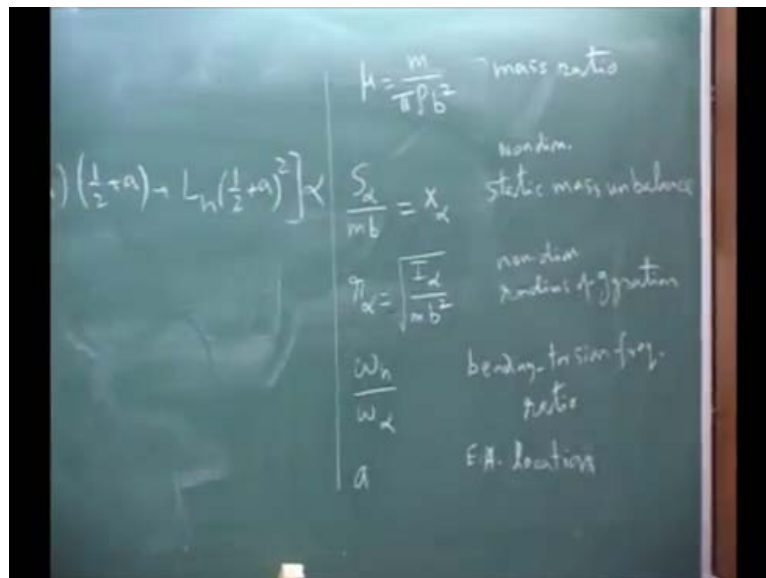 μ = m / πρb² mass ratio
) (1/2 + a) + L_h (1/2 + a)² ] α
S_α / mb = x_α nondim. static mass unbalance
r_α = √(I_α / mb²) non-dim radius of gyration
ω_h / ω_α bending-torsion freq. ratio
a E.A. location